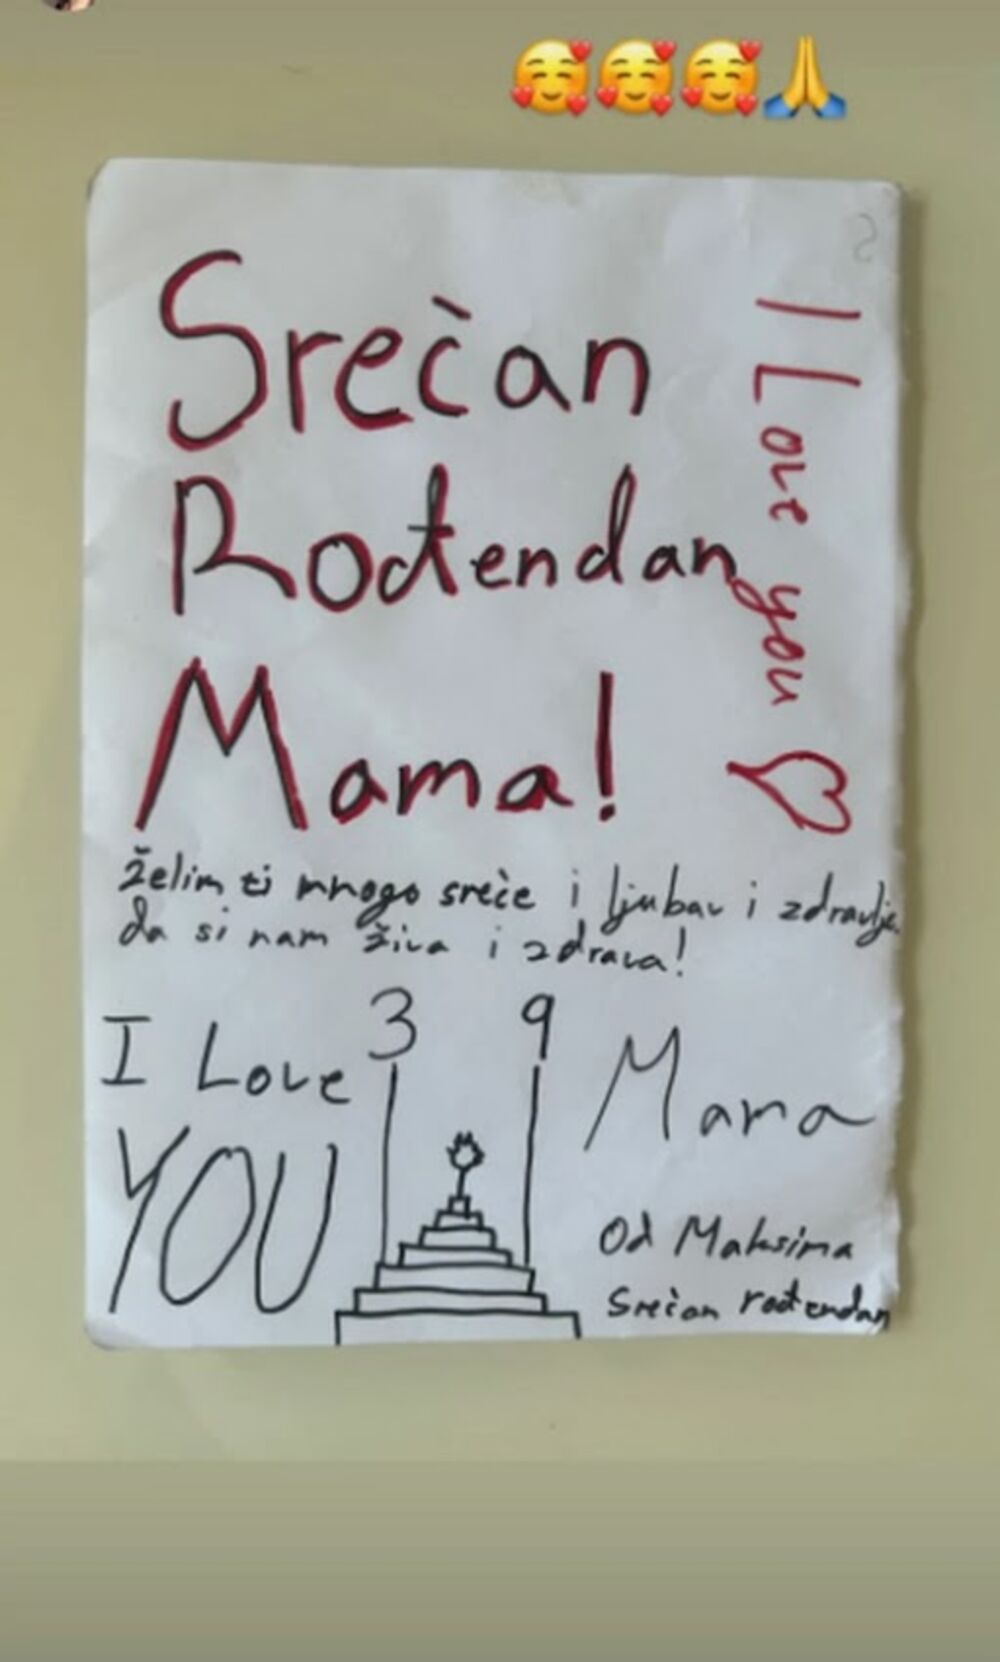 Srećan
Rođendan
Mama!
I Love you
Želim ti mnogo sreće i ljubav i zdravlje
da si nam živa i zdrava!
3 9
I Love
YOU
Mama
Od Maksima
Srećan rođendan